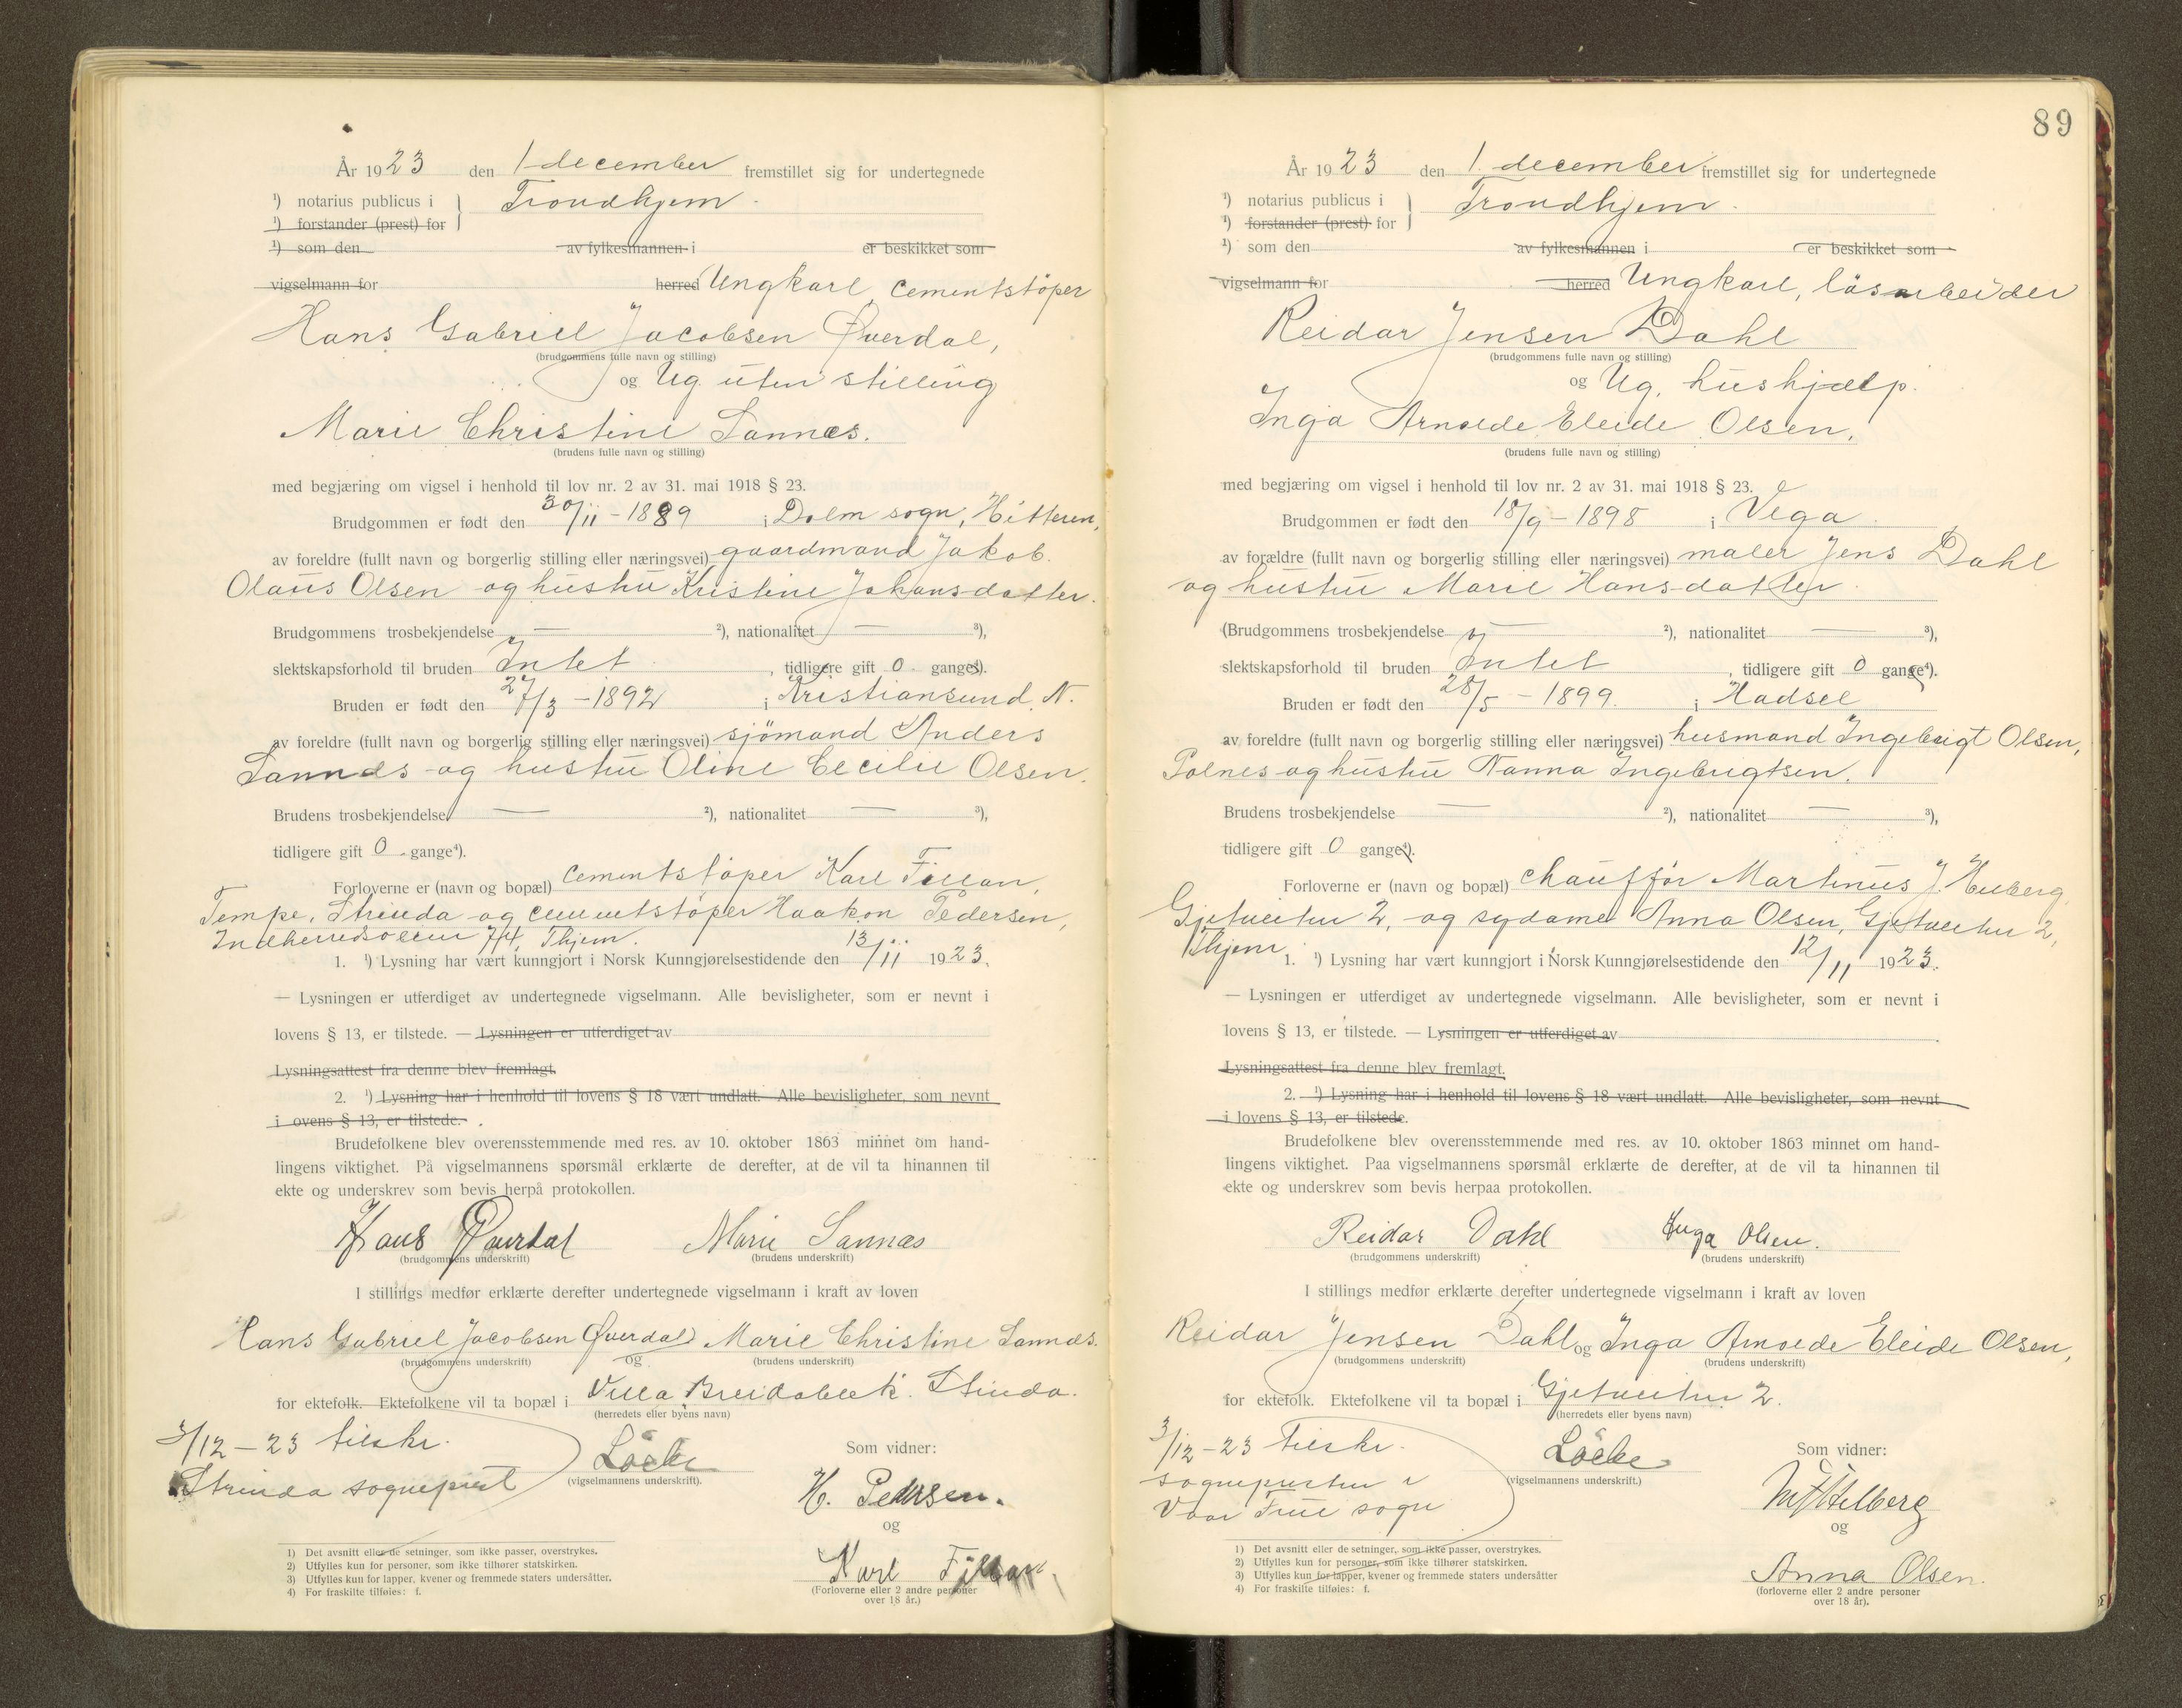 År 1923 den 1 december fremstillet sig for undertegnede
¹) notarius publicus i } Trondhjem.
¹) forstander (prest) for
¹) som den av fylkesmannen i er beskikket som
vigselmann for herred Ungkarl, cementstöper
Hans Gabriel Jacobsen Øverdal,
(brudgommens fulle navn og stilling)
og Ug. uten stilling
Marie Christine Sannæs.
(brudens fulle navn og stilling)
med begjæring om vigsel i henhold til lov nr. 2 av 31. mai 1918 § 23.
Brudgommen er født den 30/11 - 1889 i Dolm sogn, Hitteren,
av foreldre (fullt navn og borgerlig stilling eller næringsvei) gaardmand Jakob
Olaus Olsen og hustru Kristine Johansdatter.
Brudgommens trosbekjendelse — ²), nationalitet — ³),
slektskapsforhold til bruden Intet, tidligere gift 0 gange⁴).
Bruden er født den 27/3 - 1892 i Kristiansund N.
av foreldre (fullt navn og borgerlig stilling eller næringsvei) sjömand Anders
Sannæs og hustru Oline Cecilie Olsen.
Brudens trosbekjendelse — ²), nationalitet — ³),
tidligere gift 0 gange⁴).
Forloverne er (navn og bopæl) cementstöper Karl Fillan,
Tempe, Strinda og cementstöper Haakon Pedersen,
Indherredsveien 74, Thjem.
1. ¹) Lysning har vært kunngjort i Norsk Kunngjørelsestidende den 13/11 1923.
— Lysningen er utferdiget av undertegnede vigselmann. Alle bevisligheter, som er nevnt i
lovens § 13, er tilstede. — Lysningen er utferdiget av
Lysningsattest fra denne blev fremlagt.
2. ¹) Lysning har i henhold til lovens § 18 vært undlatt. Alle bevisligheter, som nevnt
i ovens § 13, er tilstede.
Brudefolkene blev overensstemmende med res. av 10. oktober 1863 minnet om hand-
lingens viktighet. På vigselmannens spørsmål erklærte de derefter, at de vil ta hinannen til
ekte og underskrev som bevis herpå protokollen.
Hans Øverdal Marie Sannæs
(brudgommens underskrift) (brudens underskrift)
I stillings medfør erklærte derefter undertegnede vigselmann i kraft av loven
Hans Gabriel Jacobsen Øverdal og Marie Christine Sannæs.
(brudgommens underskrift) (brudens underskrift)
for ektefolk. Ektefolkene vil ta bopæl i Villa Breidablik. Strinda.
(herredets eller byens navn)
3/12 - 23 tilskr.
Strinda sogneprest
Löcke
(vigselmannens underskrift).
Som vidner:
H. Pedersen.
og
Karl Fillan
(Forloverne eller 2 andre personer
over 18 år.)
1) Det avsnitt eller de setninger, som ikke passer, overstrykes.
2) Utfylles kun for personer, som ikke tilhører statskirken.
3) Utfylles kun for lapper, kvener og fremmede staters undersåtter.
4) For fraskilte tilføies: f.
89
År 1923 den 1. december fremstillet sig for undertegnede
¹) notarius publicus i } Trondhjem.
¹) forstander (prest) for
¹) som den av fylkesmannen i er beskikket som
vigselmann for herred Ungkarl, lösarbeider
Reidar Jensen Dahl
(brudgommens fulle navn og stilling)
og Ug. hushjælp.
Inga Arnolde Eleide Olsen,
(brudens fulle navn og stilling)
med begjæring om vigsel i henhold til lov nr. 2 av 31. mai 1918 § 23.
Brudgommen er født den 18/9 - 1898 i Vega
av forældre (fullt navn og borgerlig stilling eller næringsvei) maler Jens Dahl
og hustru Marie Hansdatter
(Brudgommens trosbekjendelse — ²), nationalitet — ³),
slektskapsforhold til bruden Intet, tidligere gift 0 gange⁴).
Bruden er født den 28/5 - 1899. i Hadsel
av foreldre (fullt navn og borgerlig stilling eller næringsvei) husmand Ingebrigt Olsen,
Polnes og hustru Nanna Ingebrigtsen.
Brudens trosbekjendelse — ²), nationalitet — ³),
tidligere gift 0 gange⁴).
Forloverne er (navn og bopæl) chauffør Martinus J.
Gjetveiten 2, og sydame Anna Olsen, Gjetveiten 2,
Thjem
1. ¹) Lysning har vært kunngjort i Norsk Kunngjørelsestidende den 12/11 1923.
— Lysningen er utferdiget av undertegnede vigselmann. Alle bevisligheter, som er nevnt i
lovens § 13, er tilstede. — Lysningen er utferdiget av
Lysningsattest fra denne blev fremlagt.
2. ¹) Lysning har i henhold til lovens § 18 vært undlatt. Alle bevisligheter, som nevnt
i lovens § 13, er tilstede.
Brudefolkene blev overensstemmende med res. av 10. oktober 1863 minnet om hand-
lingens viktighet. Paa vigselmannens spørsmål erklærte de derefter, at de vil ta hinannen til
ekte og underskrev som bevis herpaa protokollen.
Reidar Dahl Inga Olsen.
(brudgommens underskrift) (brudens underskrift)
I stillings medfør erklærte derefter undertegnede vigselmann i kraft av loven
Reidar Jensen Dahl og Inga Arnolde Eleide Olsen,
(brudgommens underskrift) (brudens underskrift)
for ektefolk. Ektefolkene vil ta bopæl i Gjetveiten 2.
(herredets eller byens navn)
3/12 - 23 tilskr.
sognepresten i
Vaar Frue sogn
Löcke
(vigselmannens underskrift.)
Som vidner:
og
Anna Olsen.
(forloverne eller 2 andre personer
over 18 år).
1) Det avsnitt eller de setninger, som ikke passer, overstrykes.
2) Utfylles kun for personer, som ikke tilhører statskirken.
3) Utfylles kun for lapper, kvener og fremmede staters undersåtter
4) For fraskilte tilføies: f.